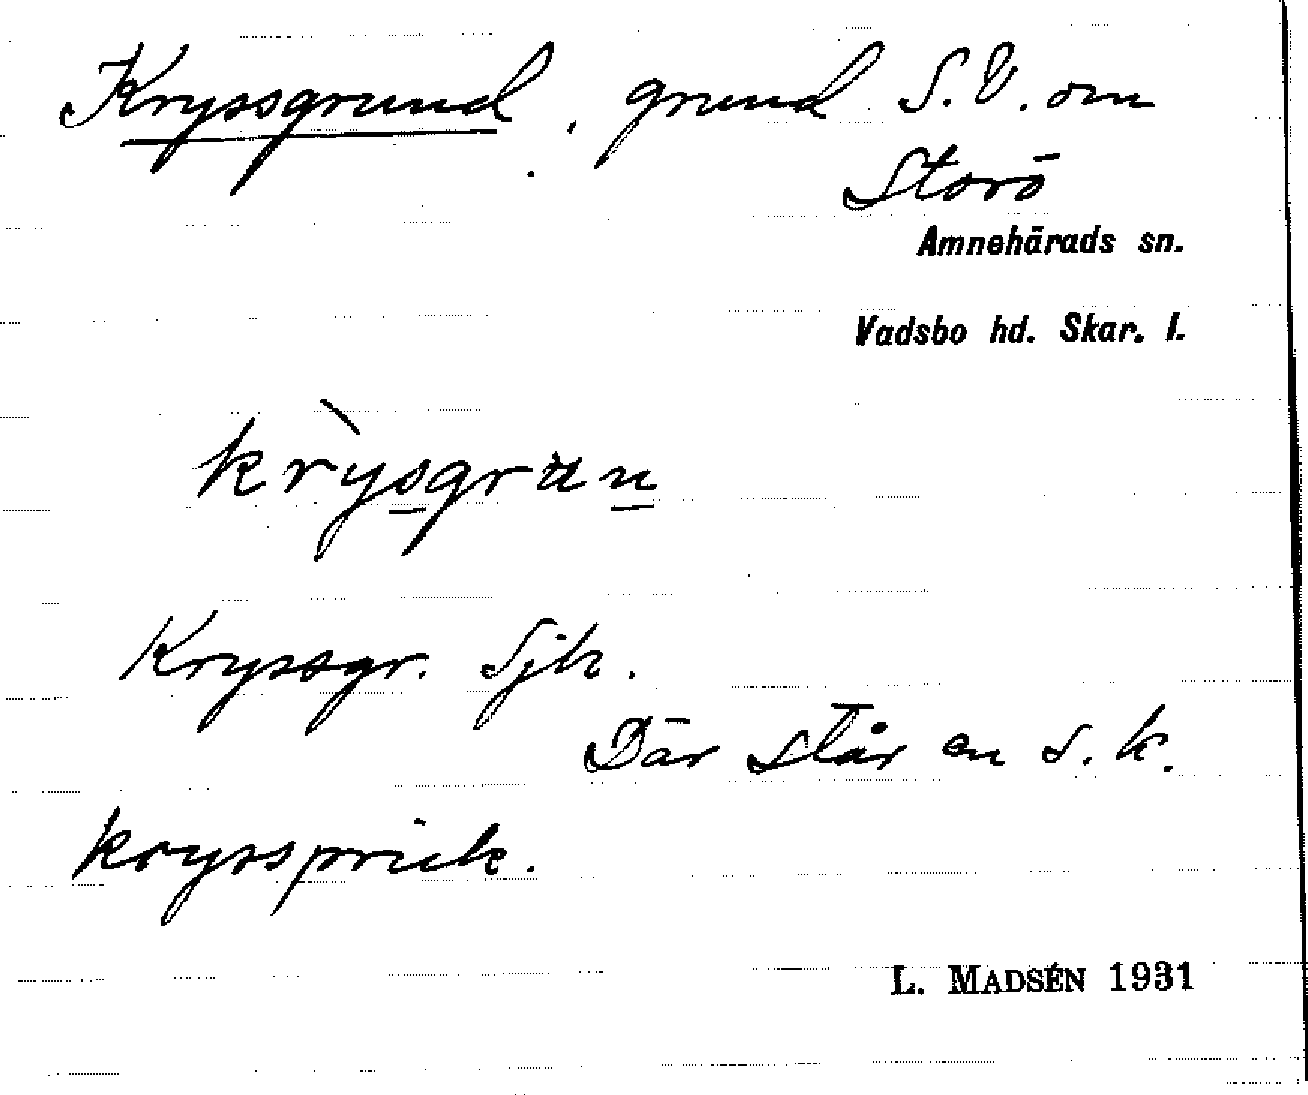 Kryssgrund, grund S.V. om
Storö
Amnehärads sn.
Vadsbo hd. Skar. l.
krỳsgrun
Kryssgr. Sjk.
Där står en s.k.
kryssprick.
L. MADSÉN 1931